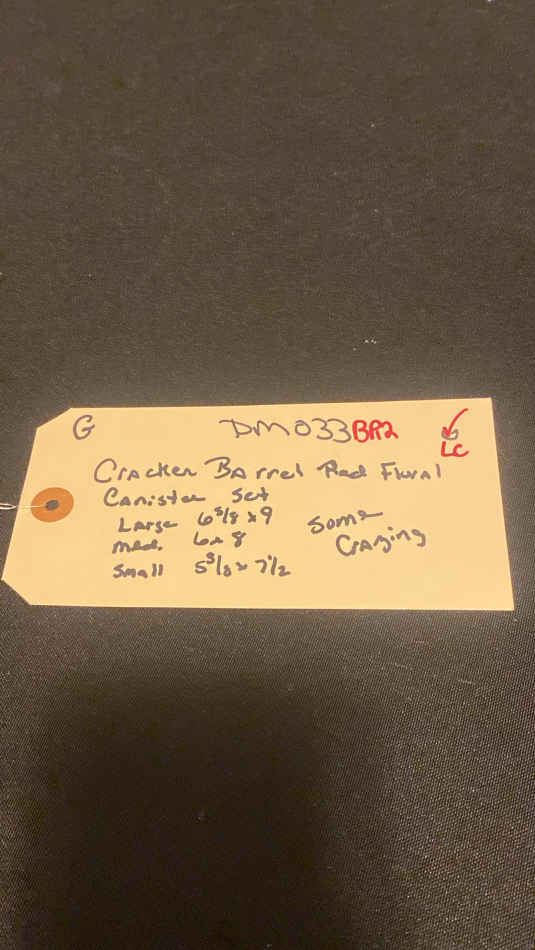 G DM033BR2
LC
Cracker Barrel Red Floral
Canister Set
Large 6 5/8 x 9
Some
Crazing
med. 6 x 8
Small 5 3/8 x 7 1/2